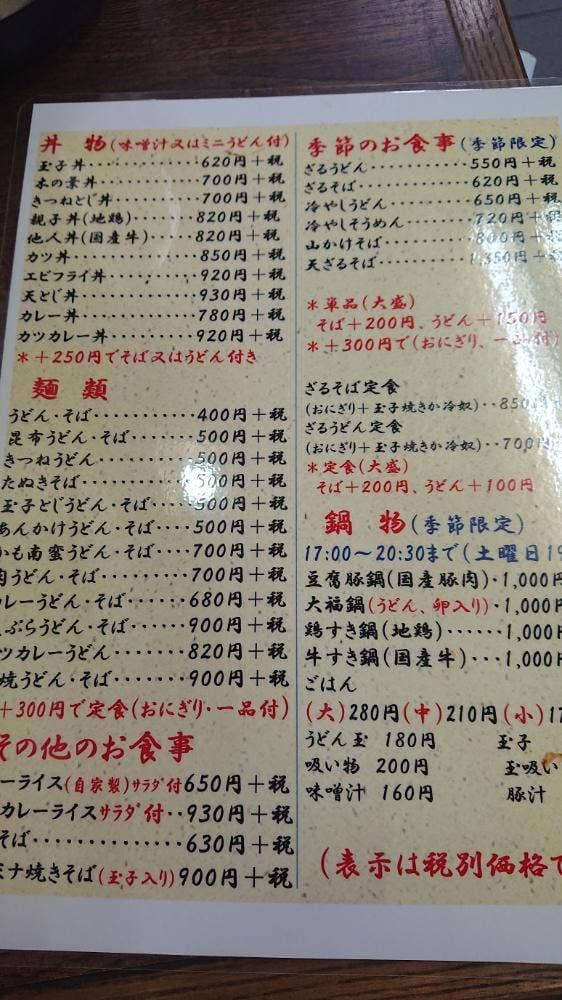 丼 物(味噌汁又はミニうどん付)
玉子丼・・・・・・・・・・620円+税
木の葉丼・・・・・・・・・・700円+税
きつねとじ丼・・・・・・・・700円+税
親子丼(地鶏)・・・・・・820円+税
他人丼(国産牛)・・・・820円+税
カツ丼・・・・・・・・・・・850円+税
エビフライ丼・・・・・・・920円+税
天とじ丼・・・・・・・・・・930円+税
カレー丼・・・・・・・・・・780円+税
カツカレー丼・・・・・・・920円+税
*+250円でそば又はうどん付き
麺 類
うどん・そば・・・・・・・・400円+税
昆布うどん・そば・・・・・500円+税
きつねうどん・・・・・・・・500円+税
たぬきそば・・・・・・・・500円+税
玉子とじうどん・そば・・・500円+税
あんかけうどん・そば・・・500円+税
かも南蛮うどん・そば・・700円+税
肉うどん・そば・・・・・・700円+税
カレーうどん・そば・・・・680円+税
ぷらうどん・そば・・・・900円+税
ツカレーうどん・・・・・・820円+税
焼うどん・そば・・・・・・900円+税
+300円で定食(おにぎり・一品付)
その他のお食事
ーライス(自家製)サラダ付650円+税
カレーライスサラダ付・・930円+税
そば・・・・・・・・・・・630円+税
ミナ焼きそば(玉子入り)900円+税
季節のお食事(季節限定)
ざるうどん・・・・・・・・・・550円+税
ざるそば・・・・・・・・・・620円+税
冷やしうどん・・・・・・・・650円+税
冷やしそうめん・・・・・・・720円+税
山かけそば・・・・・・・・・800円+税
天ざるそば・・・・・・・・・1,350円+税
*単品(大盛)
そば+200円、うどん+150円
*+300円で(おにぎり、一品付)
ざるそば定食
(おにぎり+玉子焼きか冷奴)・・850円+税
ざるうどん定食
(おにぎり+玉子焼きか冷奴)・・700円+税
*定食(大盛)
そば+200円、うどん+100円
鍋 物(季節限定)
17:00〜20:30まで(土曜日19
豆腐豚鍋(国産豚肉)・1,000円
大福鍋(うどん、卵入り)・1,000円
鶏すき鍋(地鶏)・・・・・・1,000円
牛すき鍋(国産牛)・・・1,000円
ごはん
(大)280円(中)210円(小)1
うどん玉 180円 玉子
吸い物 200円 玉吸い
味噌汁 160円 豚汁
(表示は税別価格で